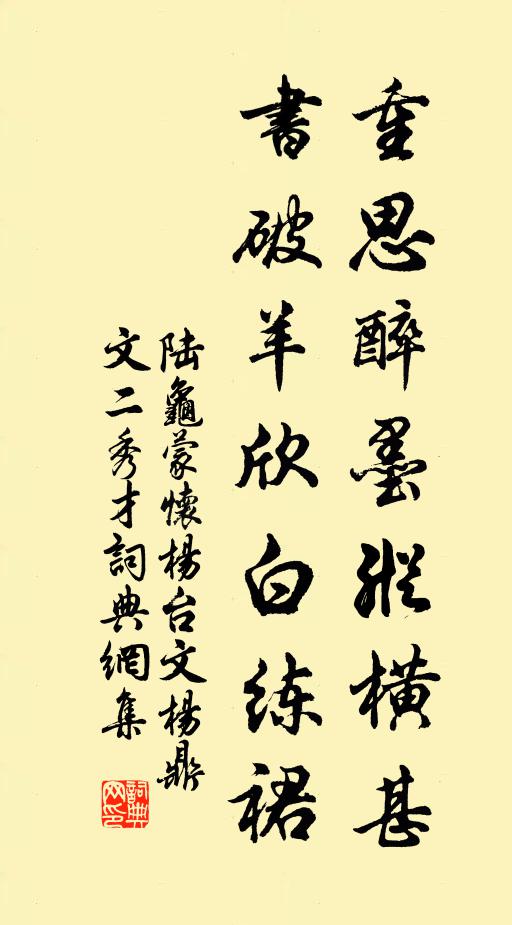 重思醉墨縱橫甚
書破羊欣白练裙
陆龜蒙懷楊台文楊鼎
文二秀才詞典網集
詞典网印